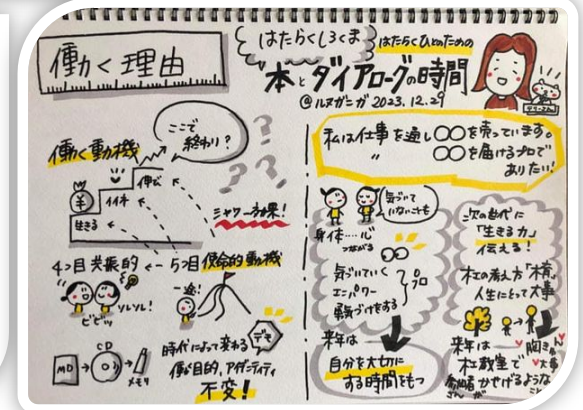 働く理由
はたらくしろくま
はたらくひとのための
本とダイアローグの時間
@ルヌガンガ 2023.12.29
働く動機
ここで
終わり?
???
伸び
イイネ
¥
生きる
シャワー効果!
4つ目 共振的 ← 5つ目 使命的動機
ソレソレ!
ビビッ
一途!
MD → CD → メモリ
時代によって変わる
デモ
働く目的、アイデンティティ
不変!
私は仕事を通し○○を売っています。
〃 ○○を届けるプロで
ありたい!
気づいて
いないことも
身体…心
つながる
気づいていく
エンパワー
勇気づけをする
プロ
来年は
自分を大切に
する時間をもつ
次の世代に
「生きる力」
伝える!
木工の考え方「木育」
人生にとって大事
来年は
木工教室で
参加者さんが
かせげるような
こと